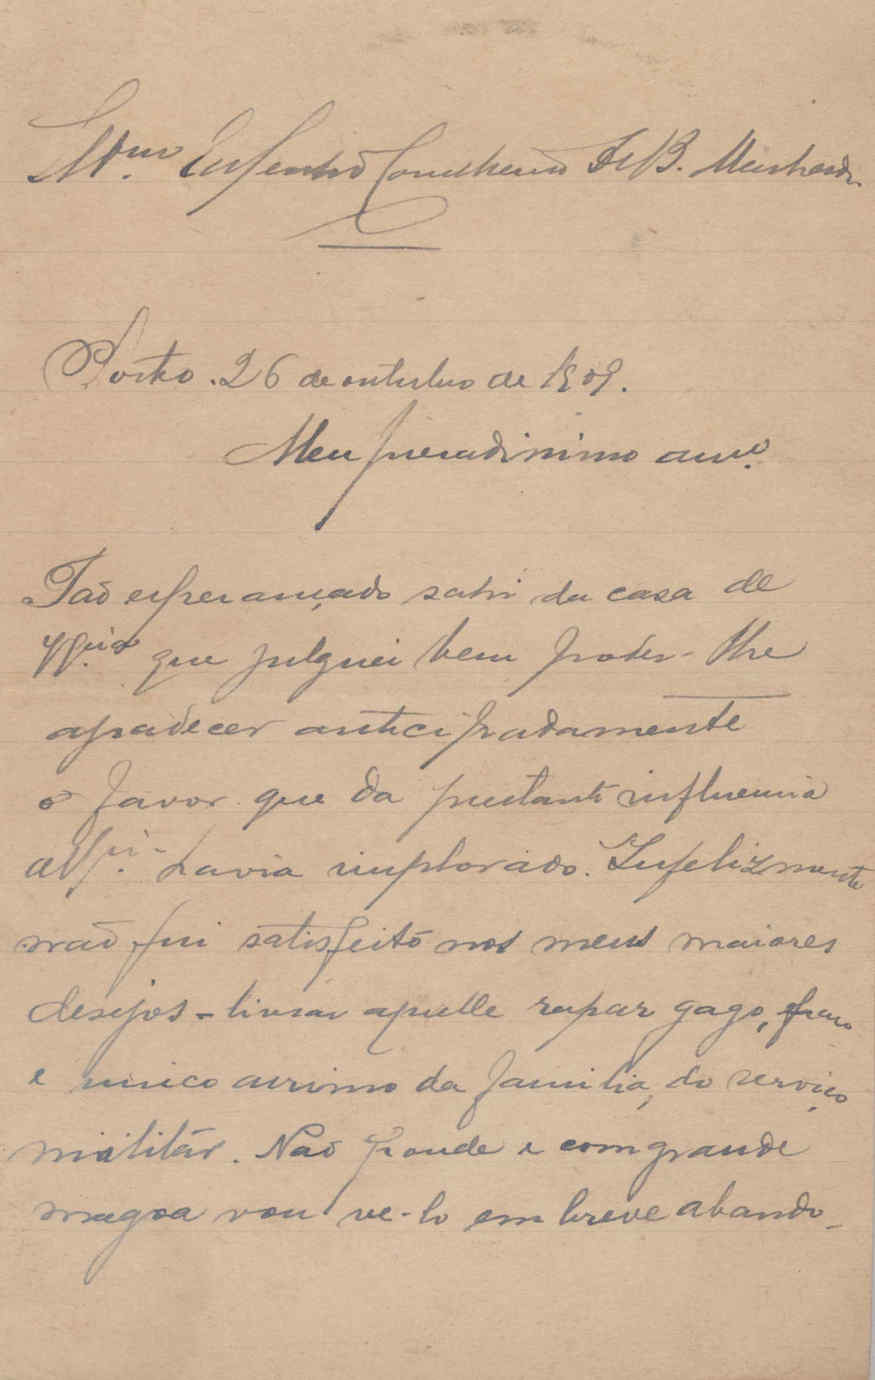 Ill.mo Ex.mo Senhor Conselheiro B. Machado
Porto. 26 de outubro de 1909.
Meu presadissimo am.o
Tão esperançado sahi da casa de
V. Ex.cia que julguei bem poder-lhe
agradecer anticipadamente
o favor que da prestante influencia
de V. Ex.cia havia implorado. Infelizmente
não fui satisfeito nos meus maiores
desejos - livrar aquelle rapaz gago, fraco
e unico arrimo da familia, do serviço
militár. Não poude e com grande
magoa vou ve-lo em breve abando-